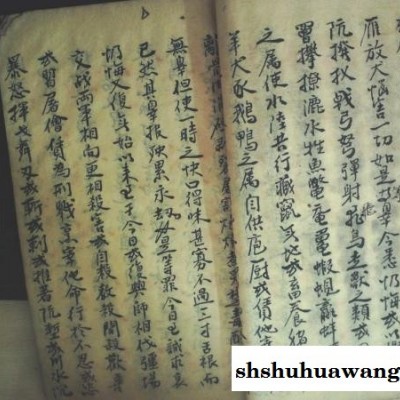 放大
一切如是等罪今悉懺悔或以
阬撥扠戟弓弩彈射飛鳥走獸之類或
撩漉水性魚鱉黿鼉蝦蜆
之属使水陸空行藏竄无地或畜養
羊犬豕鵝鴨之属自供庖厨或賃他
無辜但使一時之快口得味甚寡不過三寸舌根而
已然其辜报殃累永劫如是等罪今日至誠
懺悔又復無始以来至于今日或復興師相伐疆場
交戰兩軍相向更相殺害或自殺教殺聞殺歡喜
或習屠儈賃為刑戮烹宰他命行於不忍或恣
暴怒揮戈舞刃或斬或刺或推著阬塹或以水沉
shshuhuawang